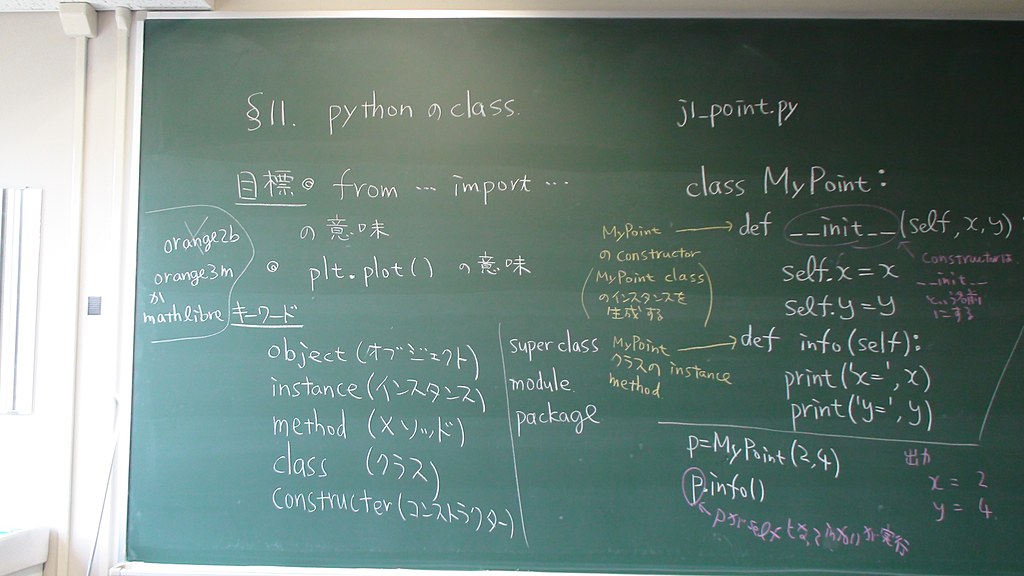 §11. pythonのclass.
目標。from … import …
の意味
。plt.plot() の意味
orange2b
orange3m
か
mathlibre
キーワード
object (オブジェクト)
instance (インスタンス)
method (メソッド)
class (クラス)
constructer (コンストラクター)
super class
module
package
j1_point.py
class MyPoint:
def __init__(self, x, y)
self.x = x
self.y = y
def info(self):
print('x=', x)
print('y=', y)
MyPoint
のconstructor
(MyPoint class
のインスタンスを
生成する)
MyPoint
クラスのinstance
method
constructorは
__init__
という名前
にする
p=MyPoint(2,4)
p.info()
出力
x = 2
y = 4